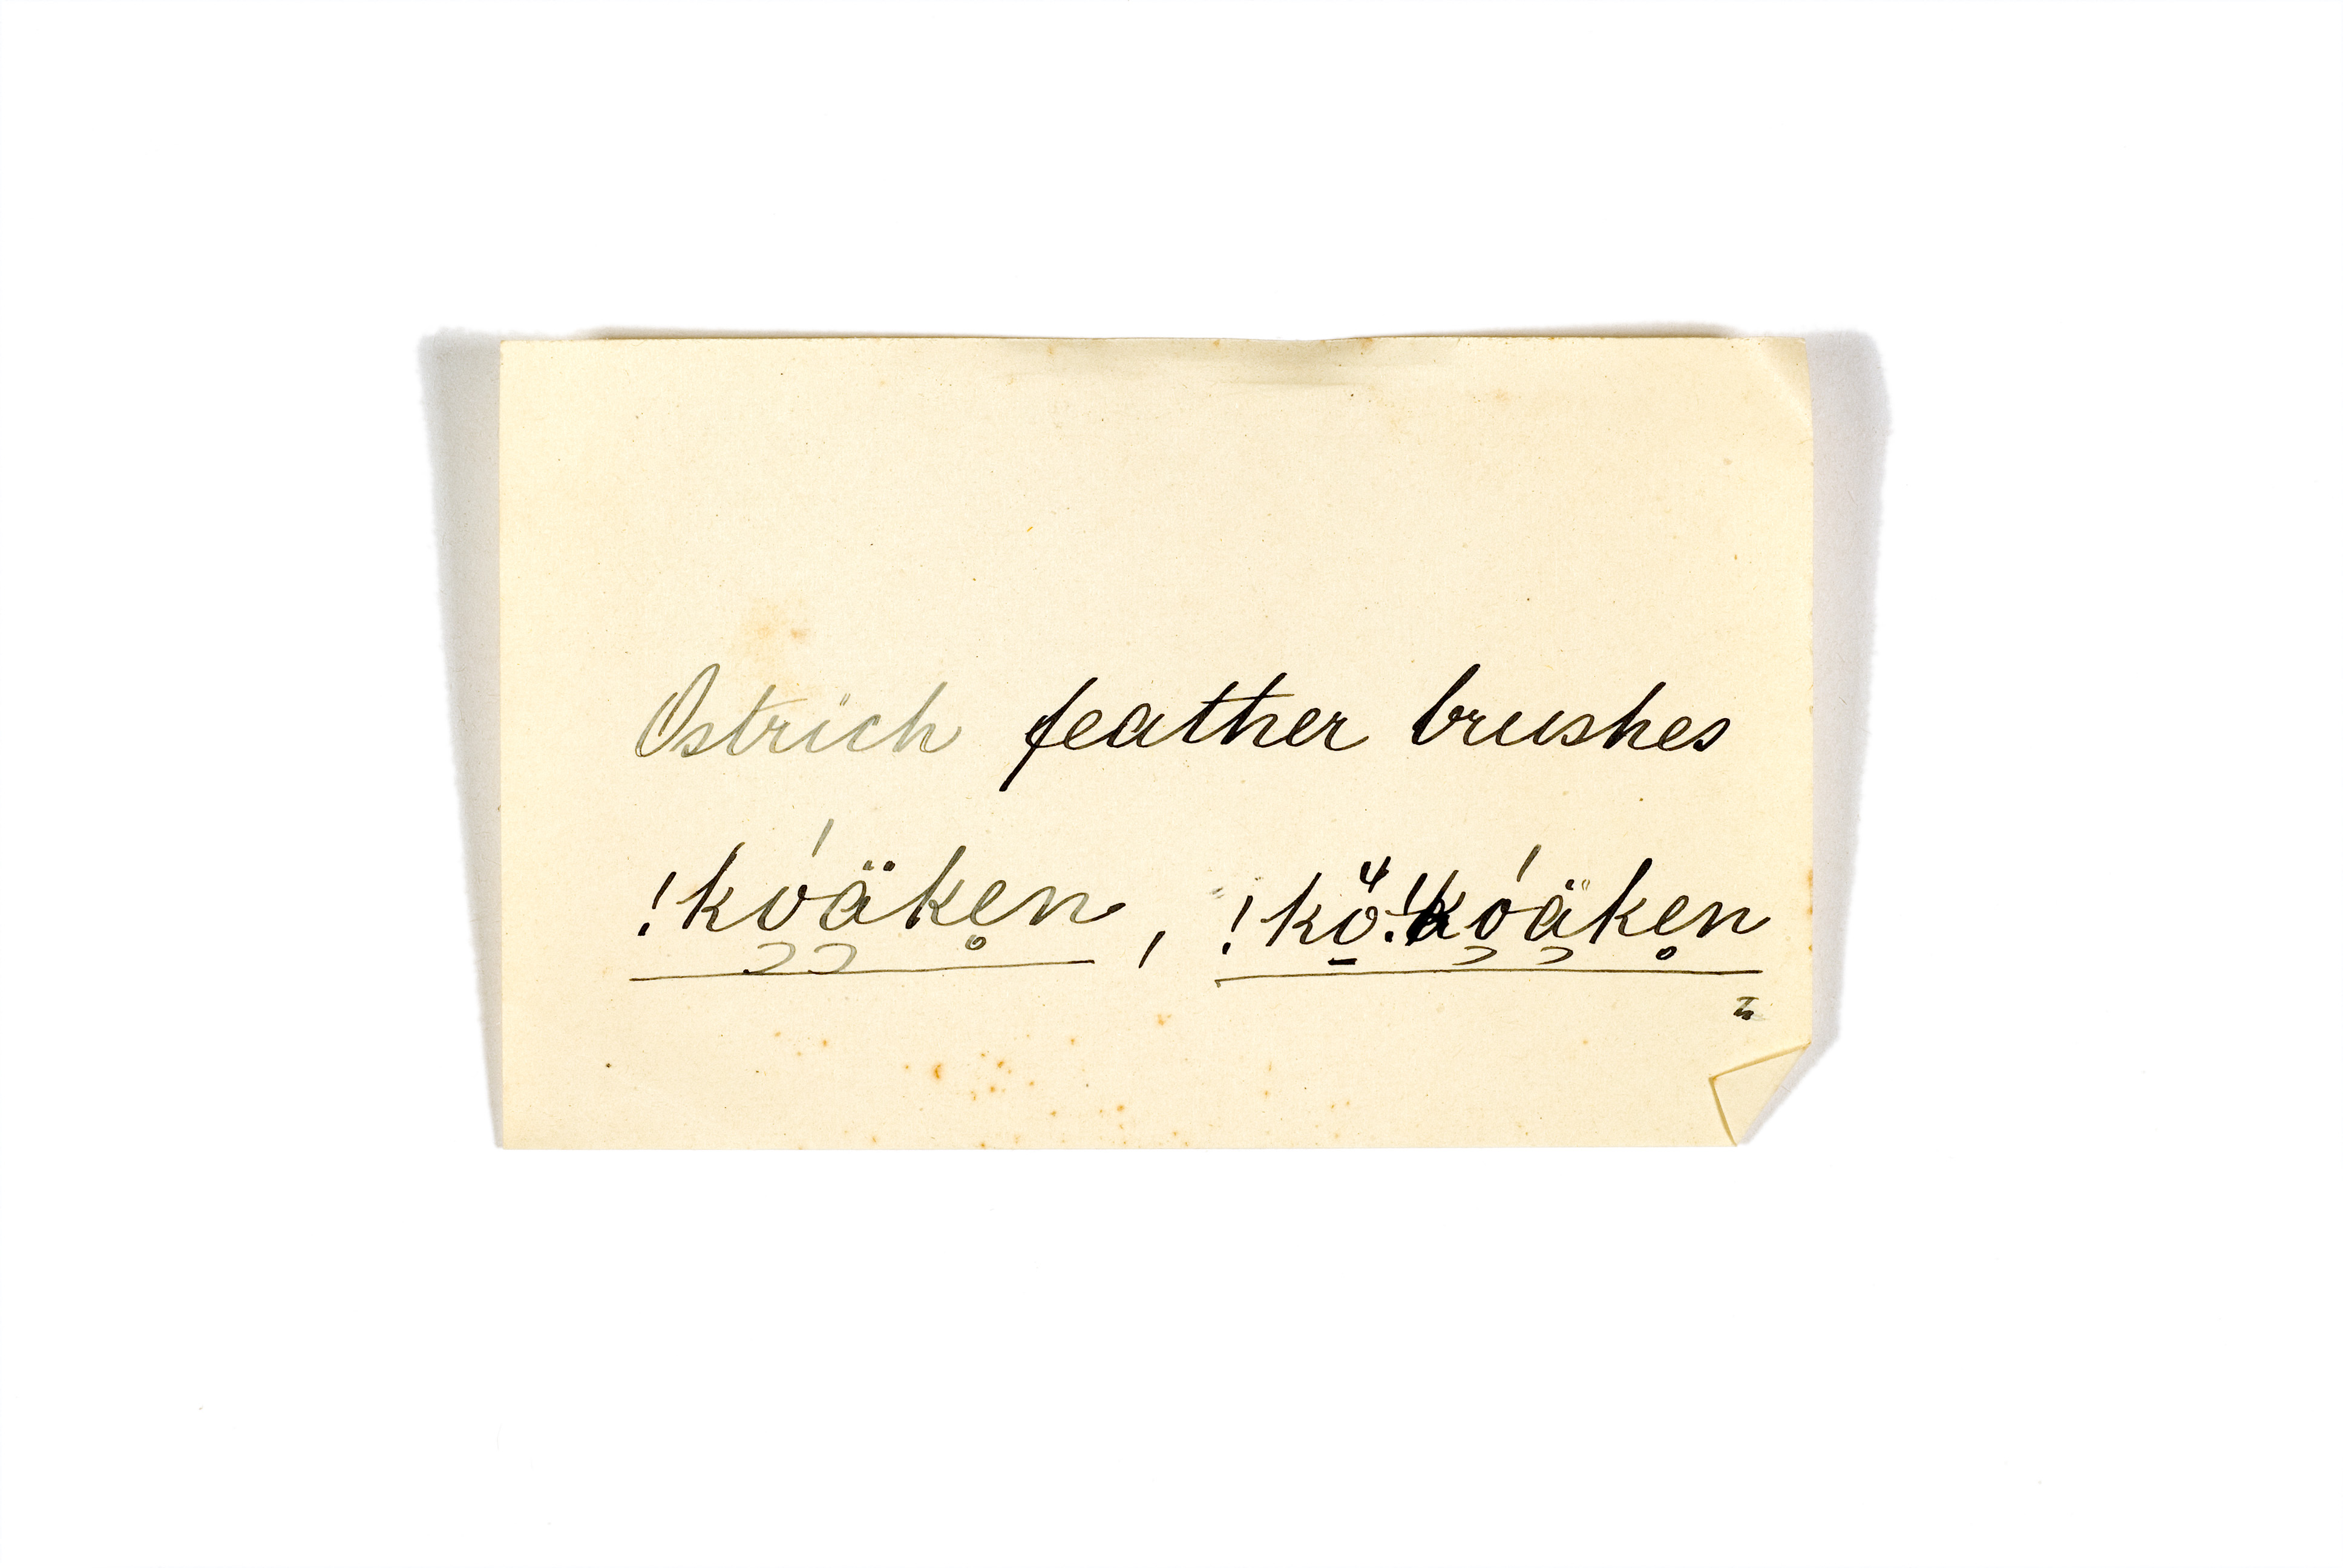 Ostrich feather brushes
!kóäken, !kö!kóäken